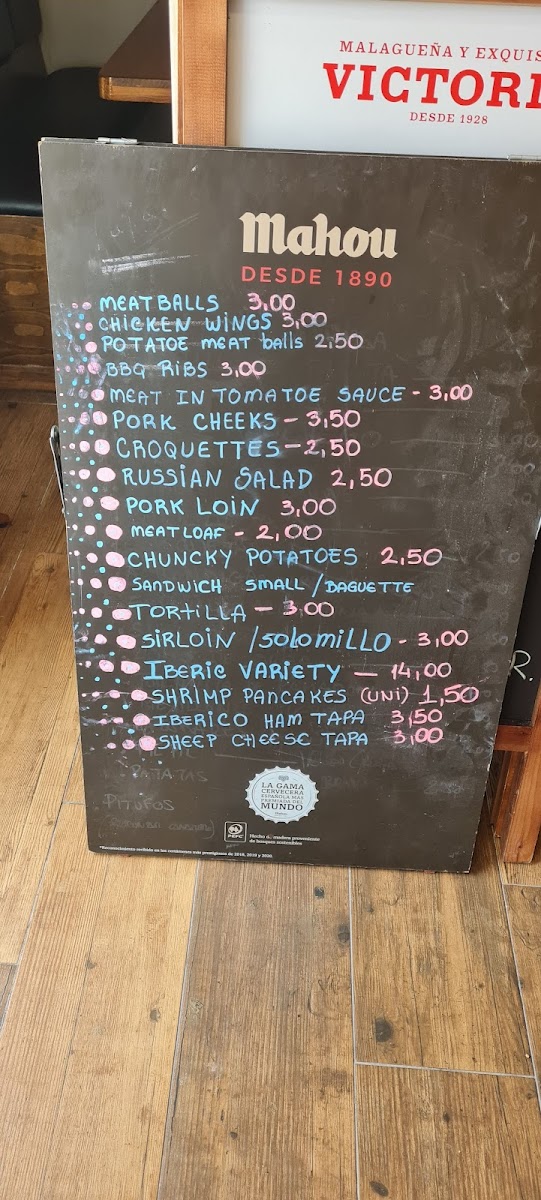 MALAGUEÑA Y EXQUIS
VICTORI
DESDE 1928
Mahou
DESDE 1890
MEATBALLS 3,00
CHICKEN WINGS 3,00
POTATOE MEAT balls 2,50
BBQ RIBS 3,00
MEAT IN TOMATOE SAUCE - 3,00
PORK CHEEKS - 3,50
CROQUETTES - 2,50
RUSSIAN SALAD 2,50
PORK LOIN 3,00
MEATLOAF - 2,00
CHUNCKY POTATOES 2,50
SANDWICH SMALL / BAGUETTE
TORTILLA - 3,00
SIRLOIN / SOLOMILLO - 3,00
IBERIC VARIETY - 14,00
SHRIMP PANCAKES (UNI) 1,50
IBERICO HAM TAPA 3,50
SHEEP CHEESE TAPA 3,00
PATATAS
PITUFOS
R.
LA GAMA
CERVECERA
ESPAÑOLA MÁS
PREMIADA DEL
MUNDO
PEFC
Hecho de madera proveniente
de bosques sostenibles
*Reconocimiento recibido en los certámenes más prestigiosos de 2018, 2019 y 2020.